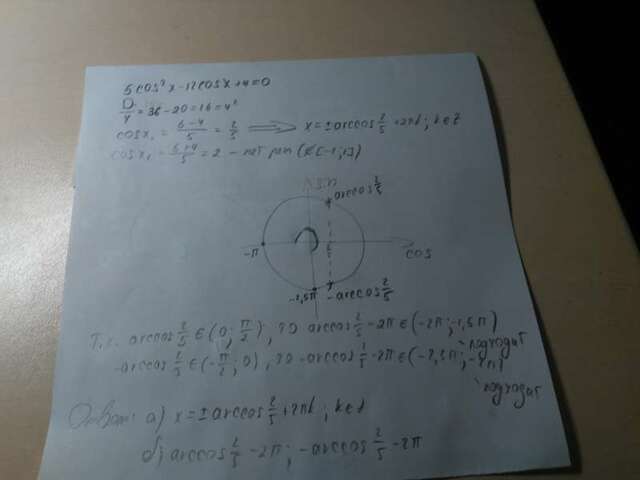 5cos²x-12cosx+4=0
D/4 = 36-20=16=4²
cosx₁ = (6-4)/5 = 2/5 ⟹ x=±arccos 2/5 +2πk; k∈Z
cosx₁ = (6+4)/5 = 2 - нет реш (∉[-1;1])
sin
arccos 2/5
-π
cos
-2,5π
-arccos 2/5
Т.к. arccos 2/5 ∈(0; π/2), то arccos 2/5 -2π∈(-2π;-1,5π)
подходит
-arccos 2/5 ∈(-π/2; 0), то -arccos 2/5 -2π∈(-2,5π;-2π)
подходит
Ответ: а) x=±arccos 2/5 +2πk; k∈Z
б) arccos 2/5 -2π; -arccos 2/5 -2π